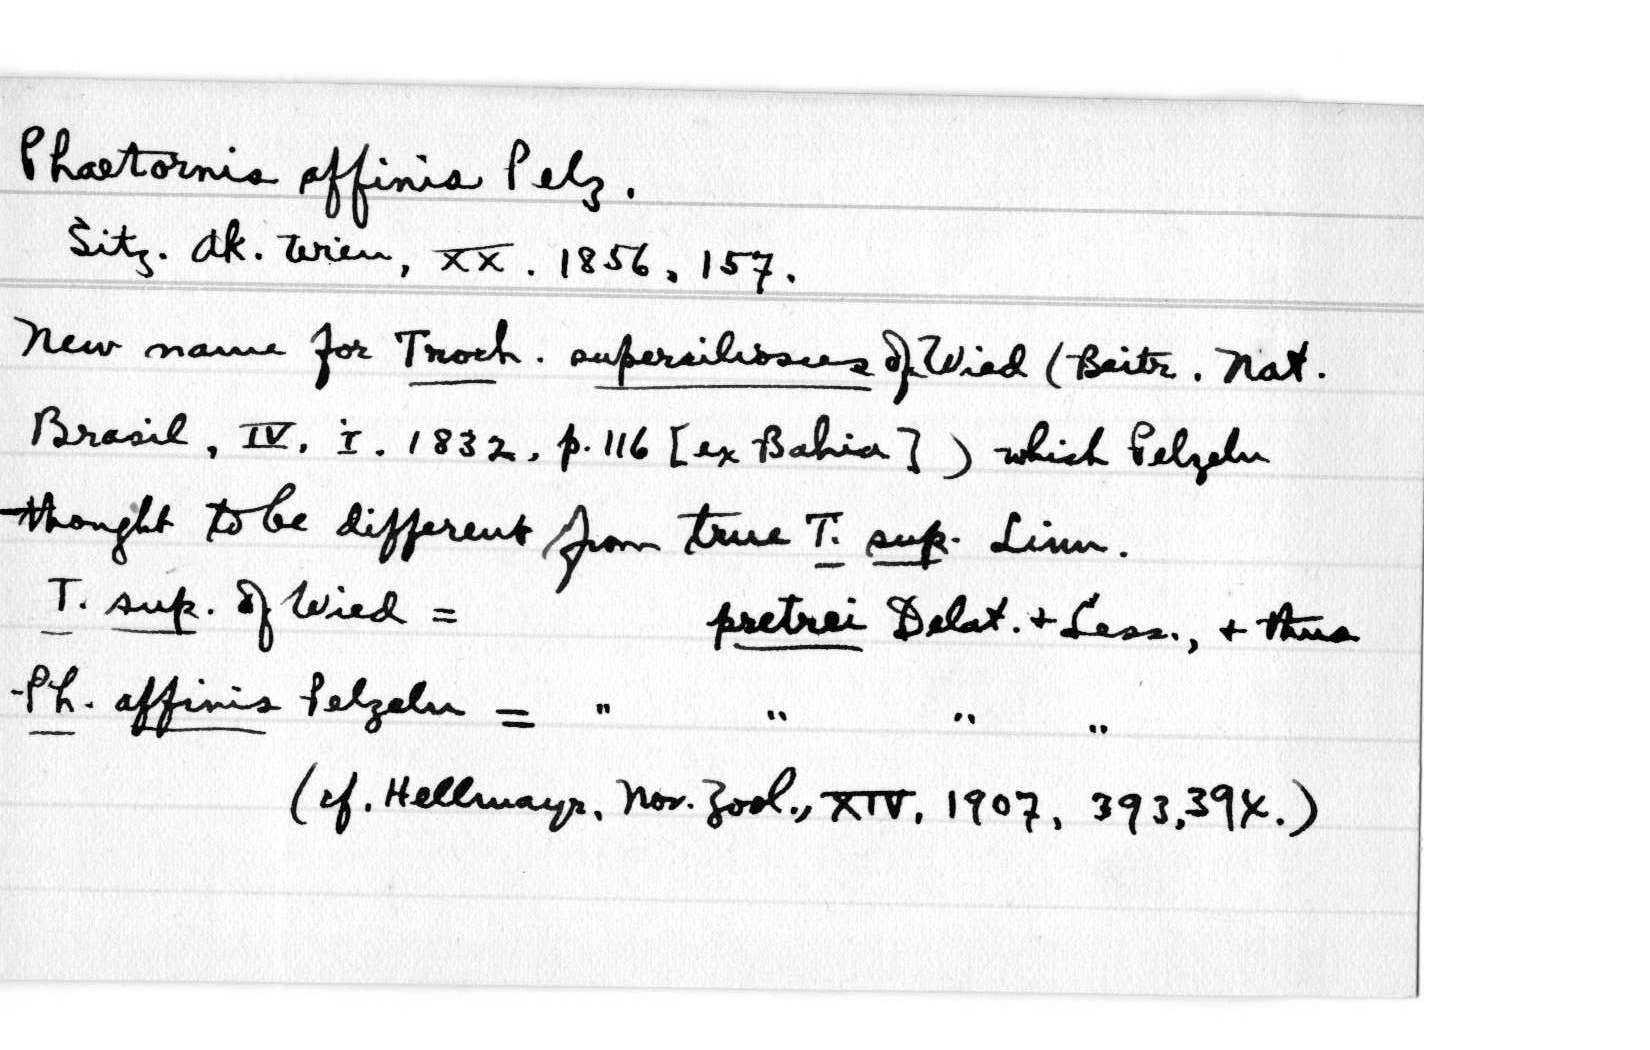 Phaetornis affinis Pelz.
Sitz. Ak. Wien, XX. 1856, 157.
New name for Troch. superciliosus of Wied (Beitr. Nat.
Brasil, IV, I. 1832, p. 116 [ex Bahia]) which Pelzeln
thought to be different from true T. sup. Linn.
T. sup. of Wied = pretrei Delat. + Less., + thus
Ph. affinis Pelzeln = " " " "
(cf. Hellmayr, Nov. Zool., XIV, 1907, 393, 394.)